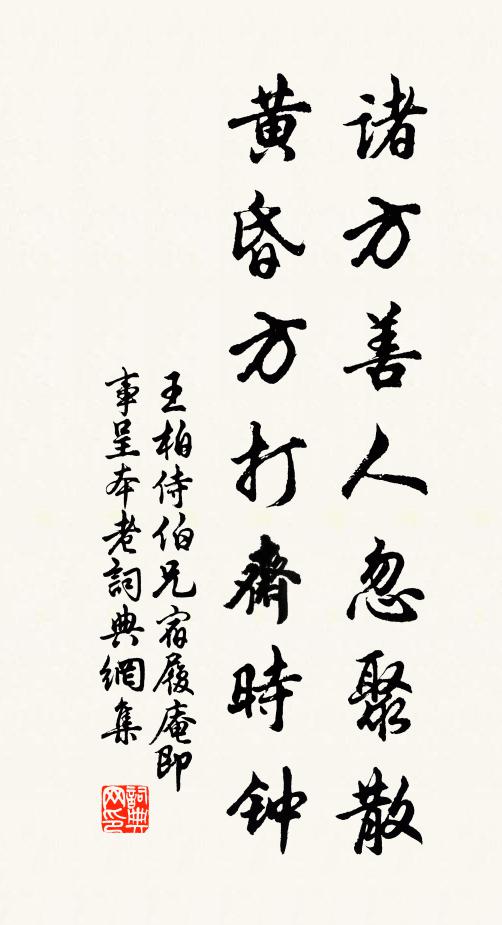 诸方善人忽聚散
黄昏方打齋時钟
王柏侍伯兄宿履庵即
事呈本老詞典網集
詞典
网印